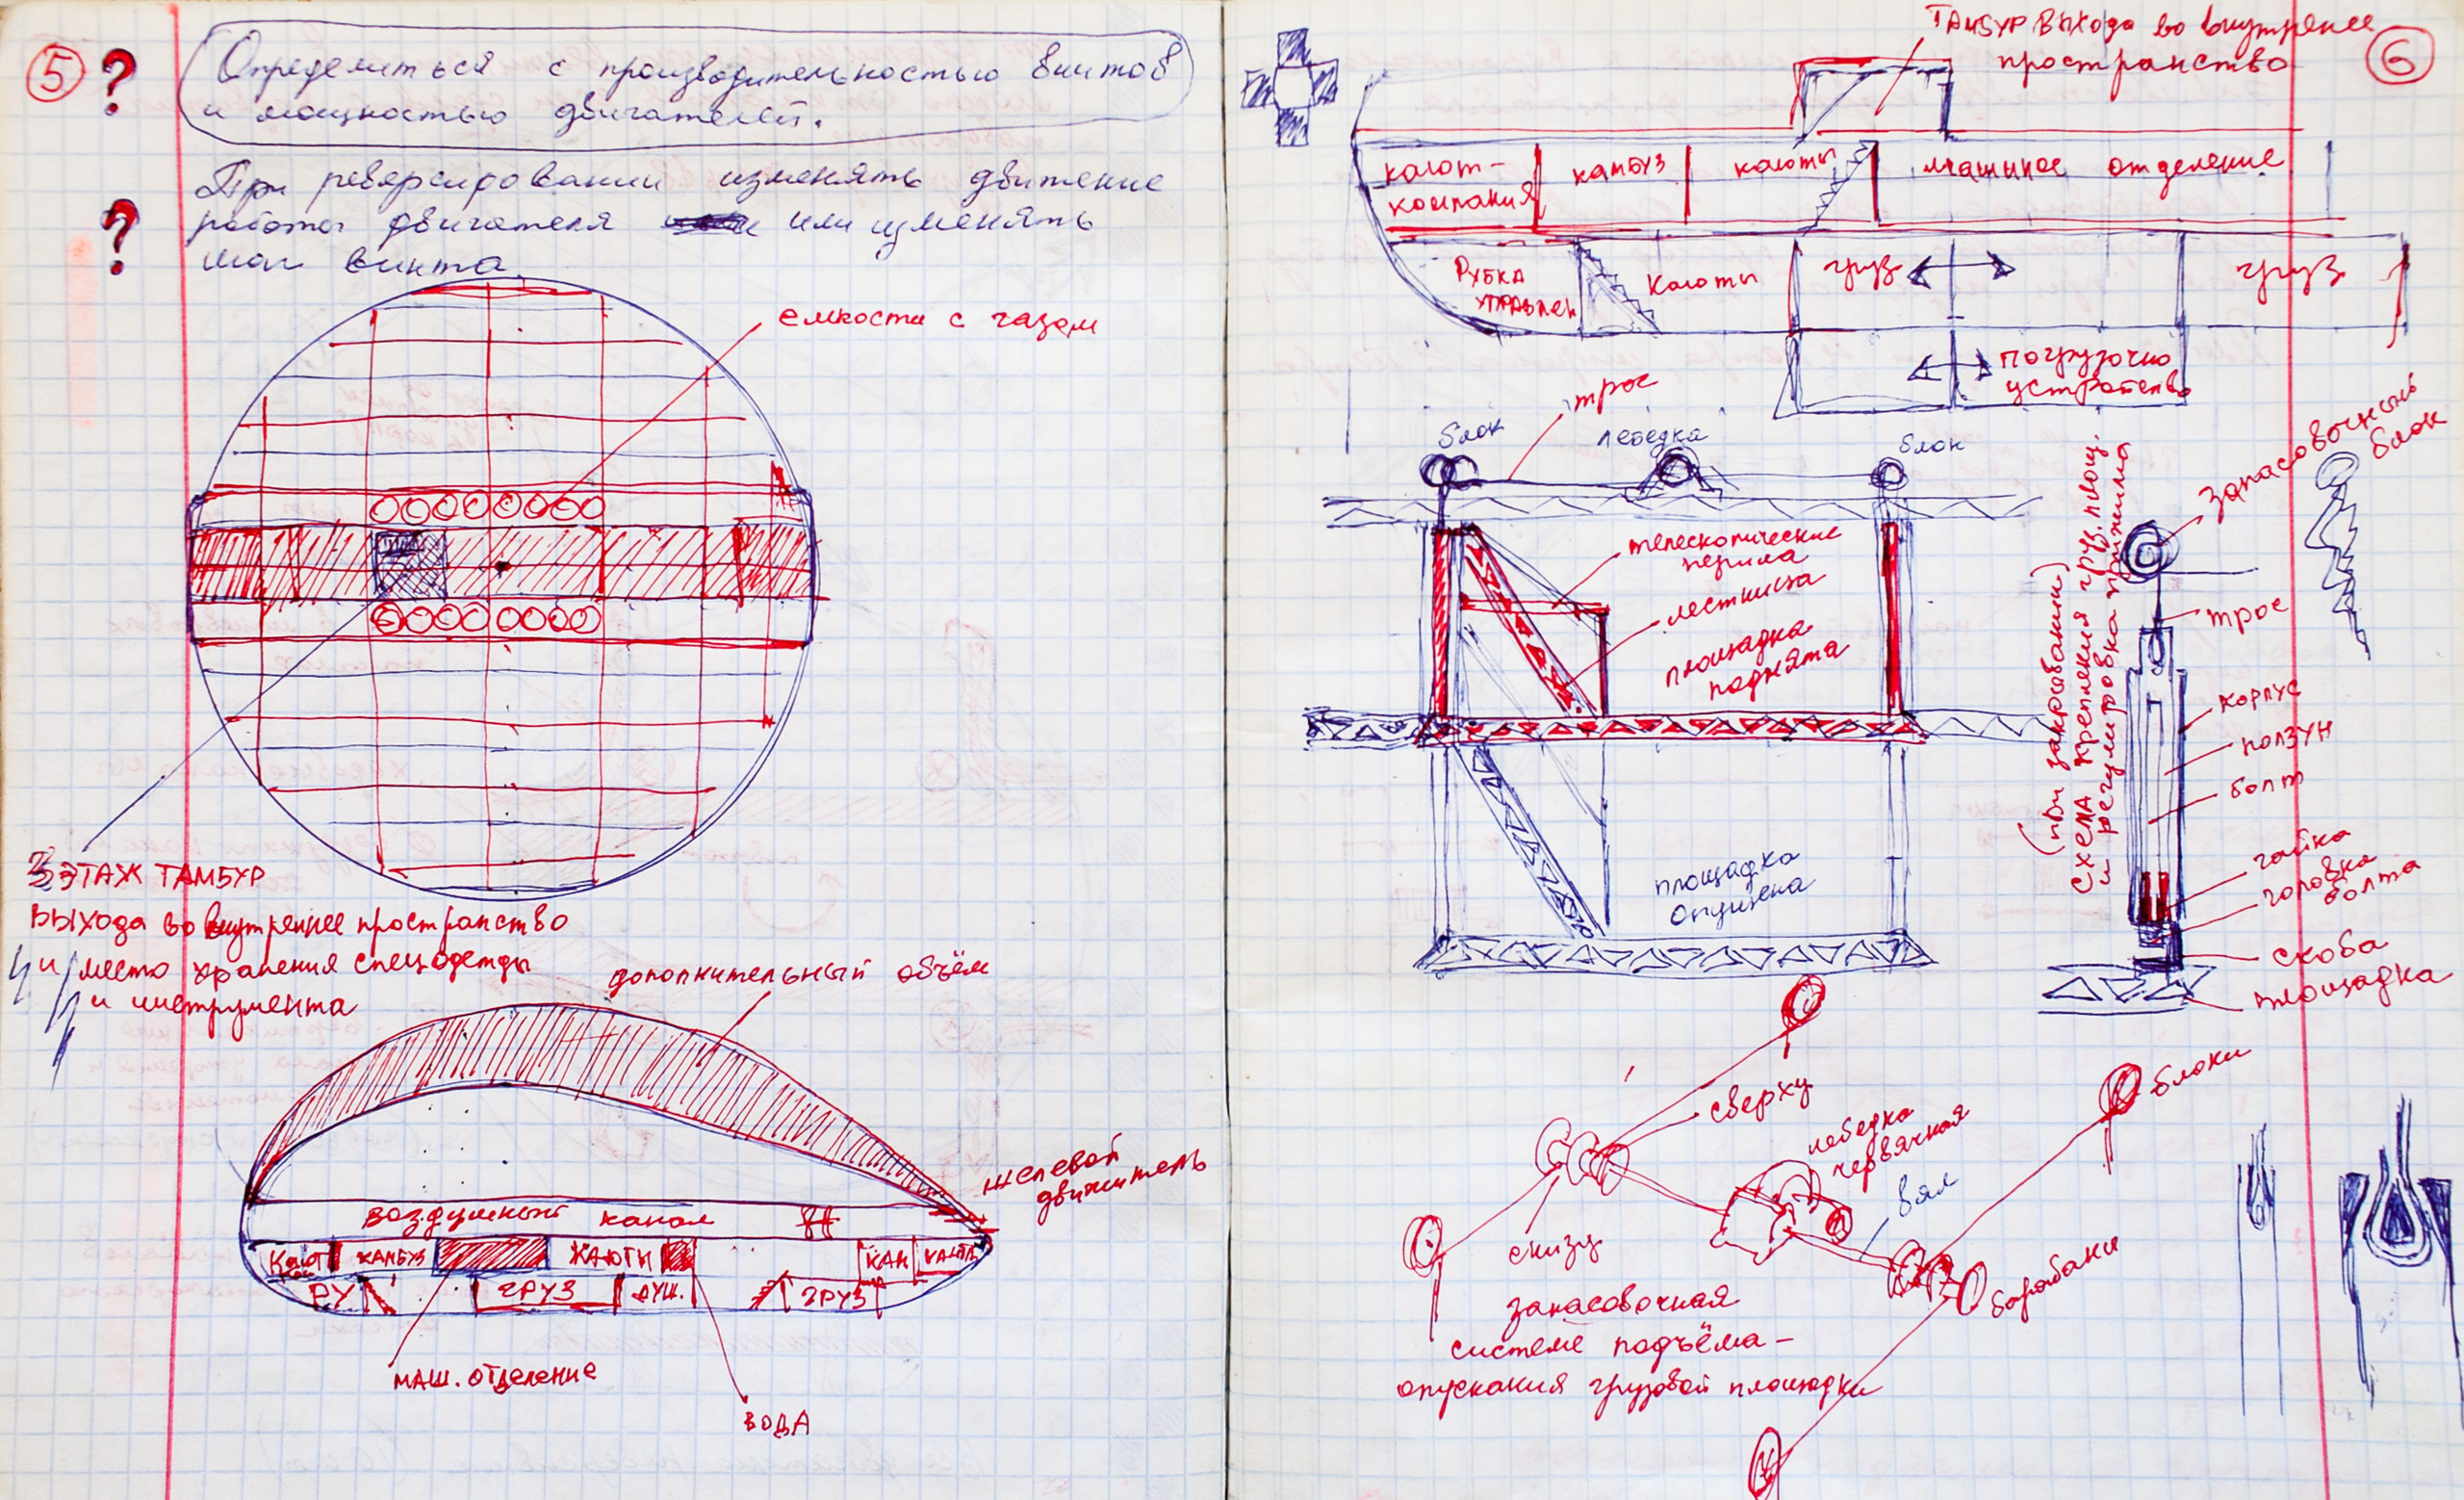 5
?
Определиться с производительностью винтов
и мощностью двигателей.
?
При реверсировании изменять движение
работы двигателя или изменять
шаг винта.
емкости с газом
3 ЭТАЖ ТАМБУР
ВЫХОДА во внутреннее пространство
и место хранения спецодежды
и инструмента
дополнительный объём
щелевой
движитель
воздушный канал
Кают
КАМБУЗ
КАЮТЫ
КАН
КАЮТЫ
РУ
ГРУЗ
ДУШ.
ГРУЗ
МАШ. ОТДЕЛЕНИЕ
ВОДА
6
ТАМБУР ВЫХОДА во внутренее
пространство
кают-
компания
камбуз
каюты
машинное отделение
РУБКА
УПРАВЛЕН
Каюты
груз
груз
погрузочно
устройство
трос
блок
лебедка
блок
телескопические
перила
лестница
площадка
поднята
площадка
опущена
(при закрывании)
СХЕМА крепления груз. площ.
и регулировка прижима
запасовочный
блок
трос
корпус
ползун
болт
гайка
головка
болта
скоба
площадка
сверху
снизу
лебедка
червячная
вал
блоки
барабаны
запасовочная
системе подъёма-
опускания грузовой площадки